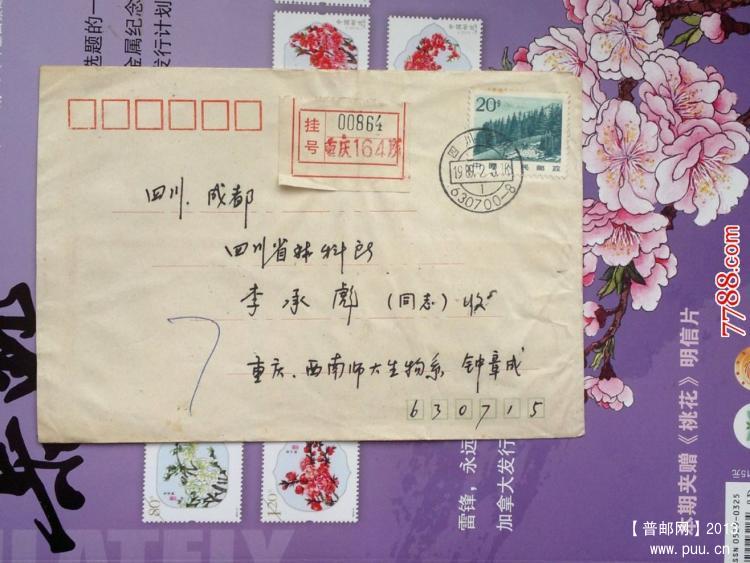 中国邮政
中国邮政
选题的一
金属纪念
发行计划
挂号
00864
重庆164
20分
中国人民邮政
四川
1989.2
1
630700-8
四川.成都
四川省林科所
李承彪(同志)收
重庆.西南师大生物系 钟章成
630715
7788.com
本期夹赠《桃花》明信片
雷锋,永远
加拿大发行
80分
1.20
ISSN 05 -0325
【普邮网】2013
www.puu.cn